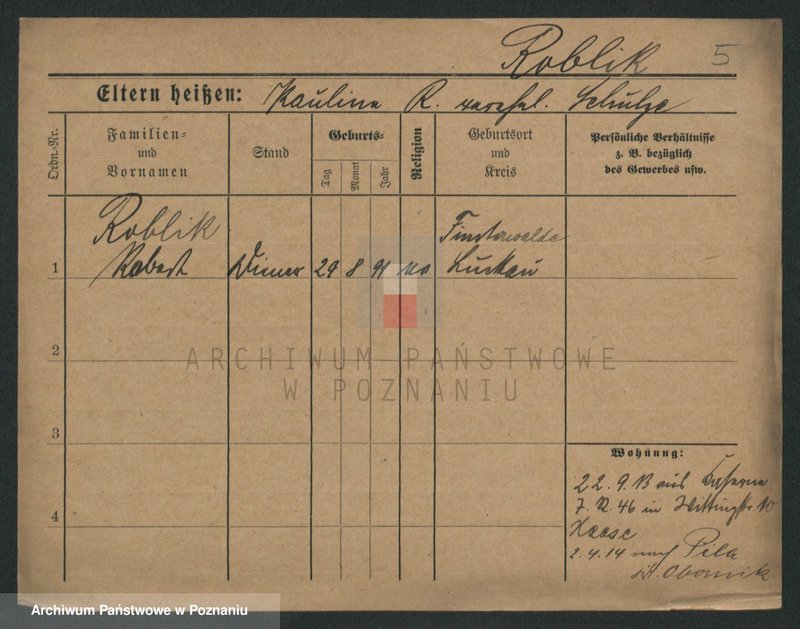 Roblik 5
Eltern heißen: Pauline R. verehel. Schulze
Ordn.-Nr.
Familien-
und
Vornamen
Stand
Geburts-
Tag
Monat
Jahr
Religion
Geburtsort
und
Kreis
Persönliche Verhältnisse
z. B. bezüglich
des Gewerbes usw.
Roblik
Finsterwalde
1 Robert Diener 29 8 91 Luckau
2
ARCHIWUM PAŃSTWOWE
W POZNANIU
3
Wohnung:
22.9.13 aus Kaserne
46 in
4
Haase
2.4.14 nach Pila
Obornik
Archiwum Państwowe w Poznaniu